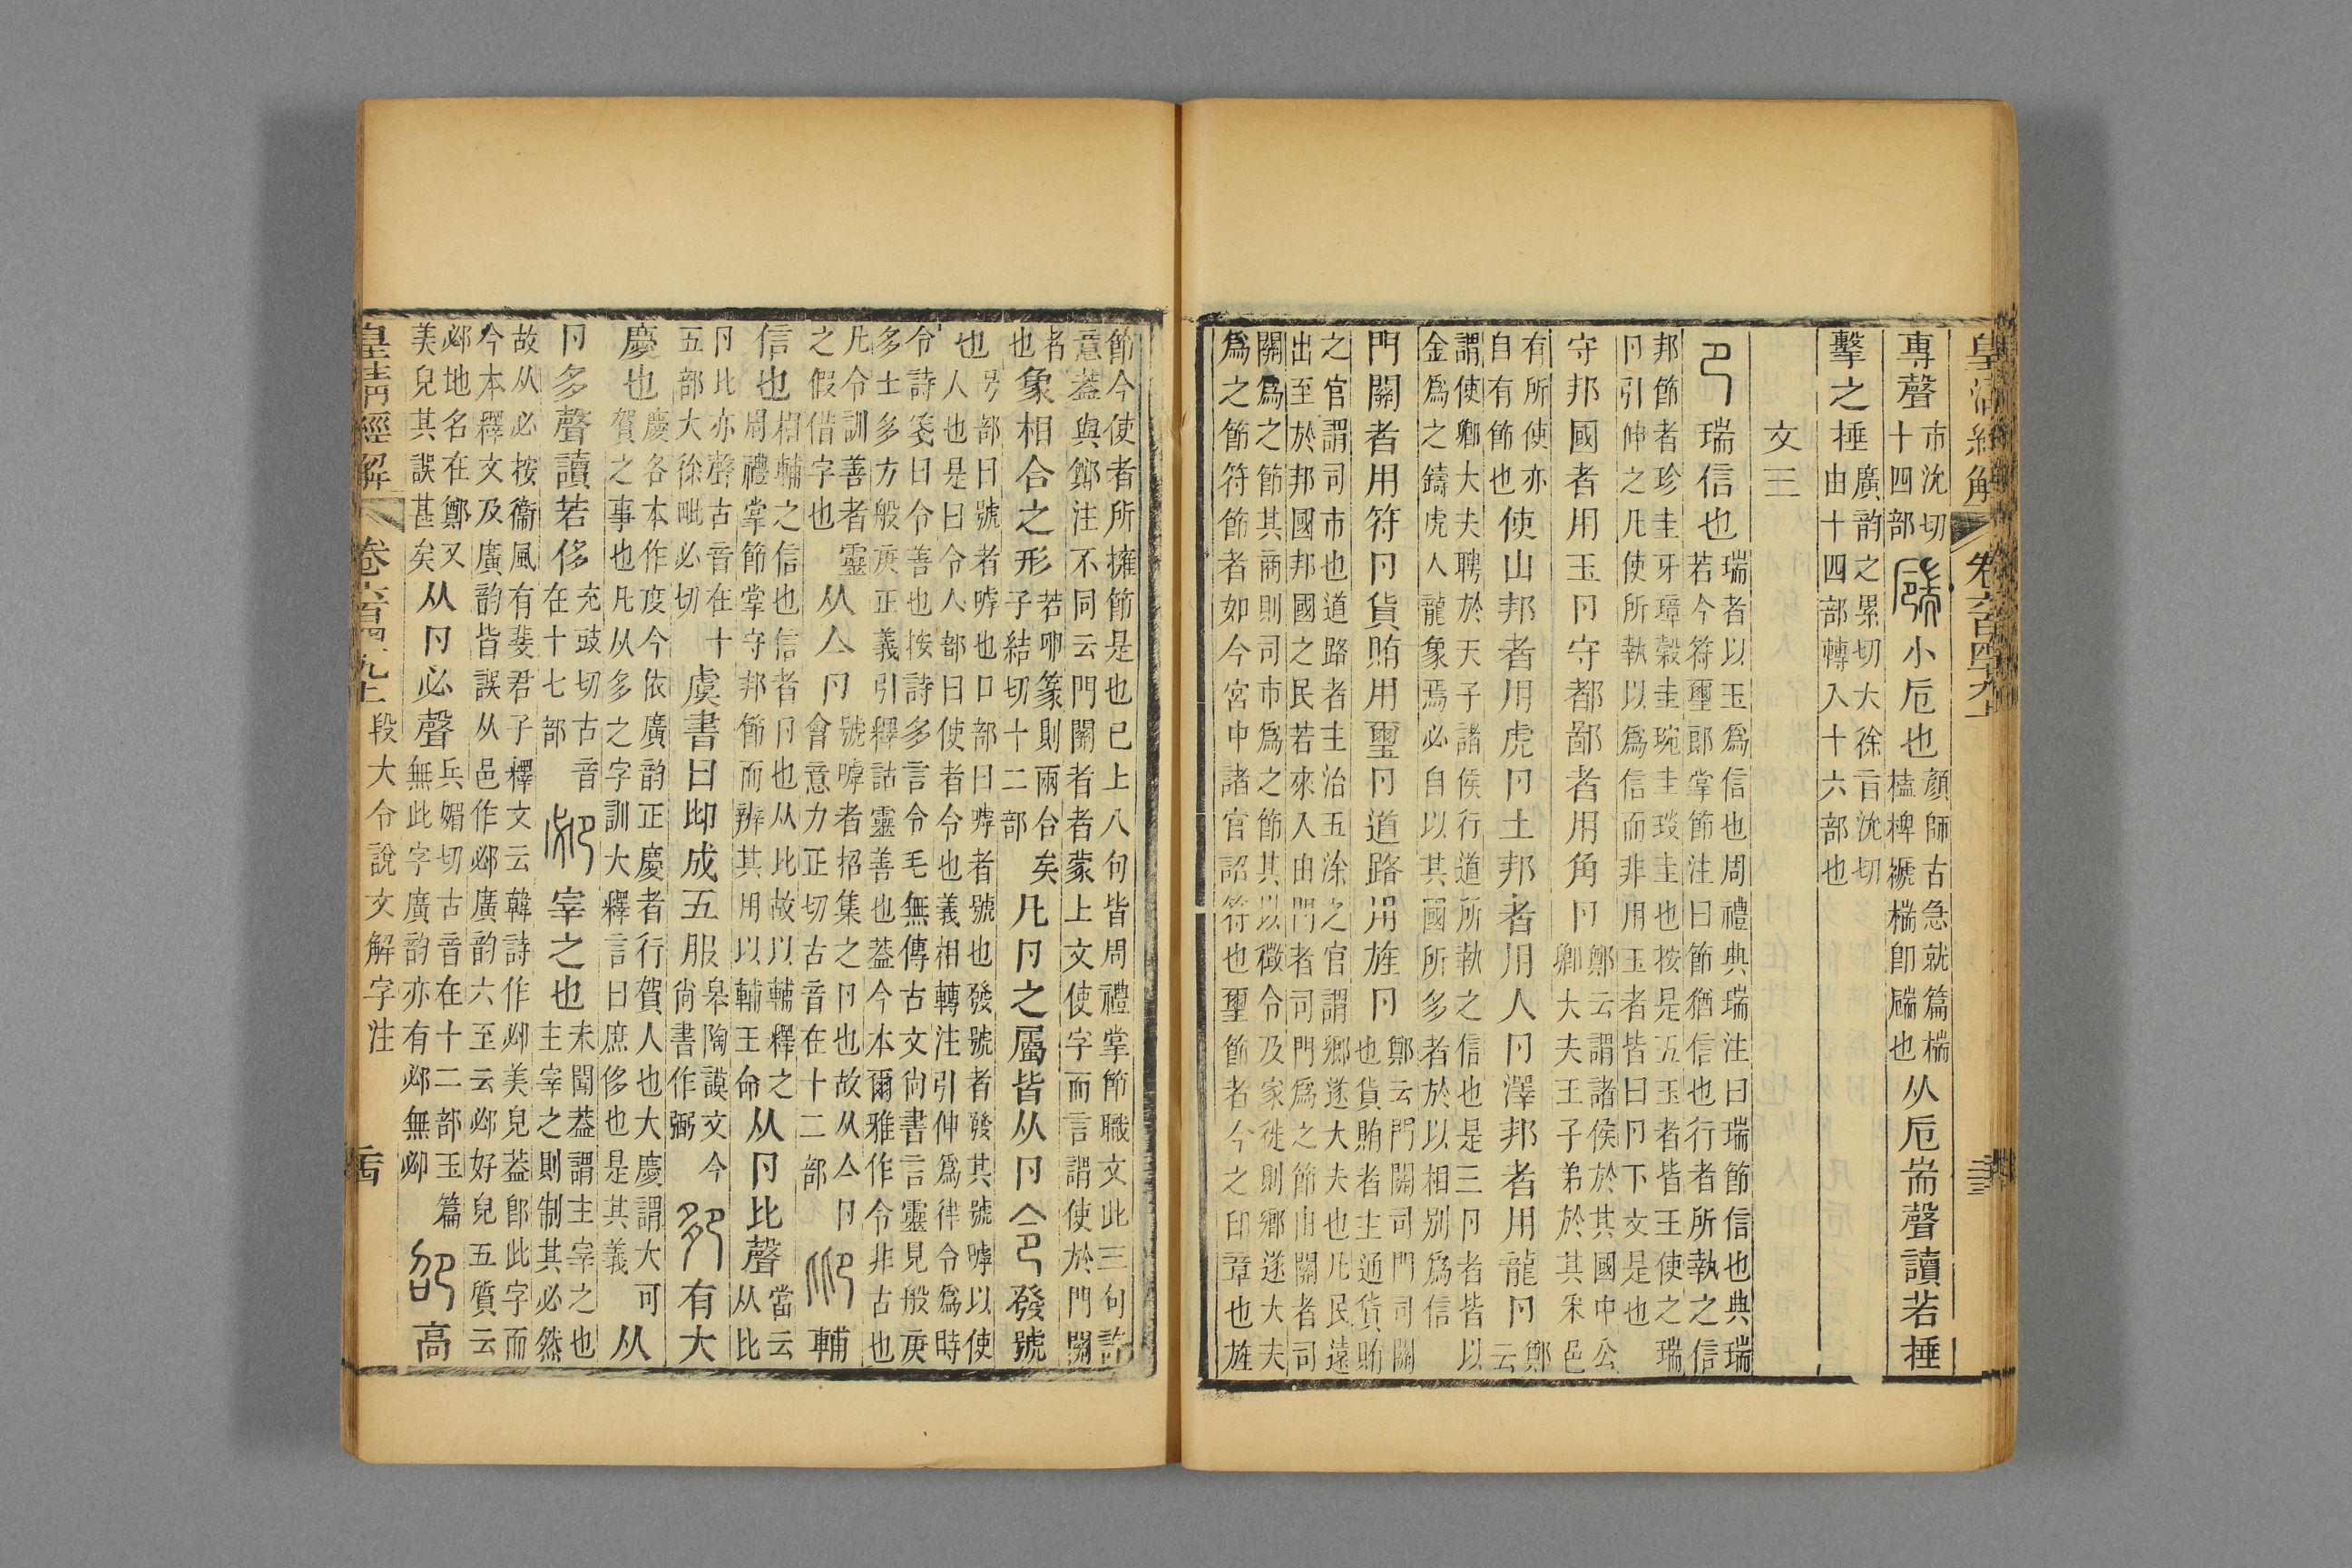 皇清經解 卷六百四十九上 三
專聲市沇切十四部小卮也顏師古急就篇椯榼椑榹椯卽也从卮耑聲讀若捶
擊之捶廣韵之累切大徐旨沇切由十四部轉入十六部也
文三
卪瑞信也瑞者以玉爲信也周禮典瑞注曰瑞節信也典瑞若今符璽郎掌節注曰節猶信也行者所執之信
邦節者珍圭牙璋穀圭琬圭琰圭也按是五玉者皆王使之瑞卪引伸之凡使所執以爲信而非用玉者皆曰卪下文是也
守邦國者用玉卪守都鄙者用角卪鄭云謂諸侯於其國中公卿大夫王子弟於其采邑
有所使亦自有節也使山邦者用虎卪土邦者用人卪澤邦者用龍卪鄭云
謂使卿大夫聘於天子諸侯行道所執之信也是三卪者皆以金爲之鑄虎人龍象焉必自以其國所多者於以相别爲信
門關者用符卪貨賄用璽卪道路用旌卪鄭云門關司門司關也貨賄者主通貨賄
之官謂司市也道路者主治五涂之官謂鄉遂大夫也凡民遠出至於邦國邦國之民若來入由門者司門爲之節由關者司
關爲之節其商則司市爲之節其以徵令及家徙則鄉遂大夫爲之節符節者如今宮中諸官詔符也璽節者今之印章也旌
節今使者所擁節是也已上八句皆周禮掌節職文此三句許意葢與鄭注不同云門關者者蒙上文使字而言謂使於門關
者也象相合之形若卵篆則兩合矣子結切十二部凡卪之屬皆从卪令發號
也号部曰號者嘑也口部曰嘑者號也發號者發其號嘑以使人也是曰令人部曰使者令也義相轉注引伸爲律令爲時
令詩箋曰令善也按詩多言令毛無傳古文尙書言靈見般庚多士多方般庚正義引釋詁靈善也葢今本爾雅作令非古也
凡令訓善者靈之假借字也从亼卪號嘑者招集之卪也故从亼卪會意力正切古音在十二部㔻輔
信也相輔之信也信者卪也从比故以輔釋之周禮掌節掌守邦節而辨其用以輔王命从卪比聲當云从比
卪比亦聲古音在十五部大徐毗必切虞書曰㔻成五服皋陶謨文今尙書作弼卶有大
慶也慶各本作度今依廣韵正慶者行賀人也大慶謂大可賀之事也凡从多之字訓大釋言曰庶侈也是其義从
卪多聲讀若侈充豉切古音在十七部宰之也未聞葢謂主宰之也主宰之則制其必然
故从必按衞風有斐君子釋文云韓詩作美皃葢卽此字而今本釋文及廣韵皆誤从邑作邲廣韵六至云邲好皃五質云
邲地名在鄭又美皃其誤甚矣从卪必聲兵媚切古音在十二部玉篇無此字廣韵亦有邲無卲高
皇清經解 卷六百四十九上 段大令說文解字注 云